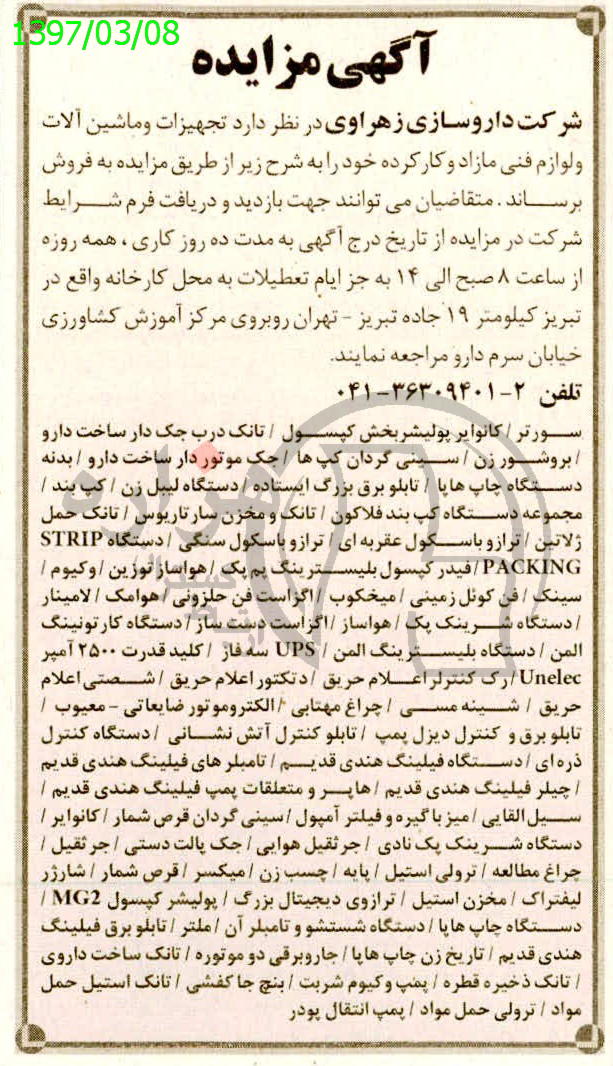 1397/03/08
آگهی مزایده
شرکت داروسازی زهراوی در نظر دارد تجهیزات وماشین آلات
ولوازم فنی مازاد وکارکرده خود را به شرح زیر از طریق مزایده به فروش
برساند . متقاضیان می توانند جهت بازدید و دریافت فرم شرایط
شرکت در مزایده از تاریخ درج آگهی به مدت ده روز کاری ، همه روزه
از ساعت ۸ صبح الی ۱۴ به جز ایام تعطیلات به محل کارخانه واقع در
تبریز کیلومتر ۱۹ جاده تبریز - تهران روبروی مرکز آموزش کشاورزی
خیابان سرم دارو مراجعه نمایند.
تلفن ۲-۳۶۳۰۹۴۰۱-۰۴۱
سورتر / کانوایر پولیشربخش کپسول / تانک درب جک دار ساخت دارو
/ بروشور زن / سینی گردان کپ ها / جک موتور دار ساخت دارو / بدنه
دستگاه چاپ هاپا / تابلو برق بزرگ ایستاده / دستگاه لیبل زن / کپ بند /
مجموعه دستگاه کپ بند فلاکون / تانک و مخزن سارتاریوس / تانک حمل
ژلاتین / ترازو باسکول عقربه ای / ترازو باسکول سنگی / دستگاه STRIP
PACKING / فیدر کپسول بلیسترینگ پم پک / هواساز توزین / وکیوم /
سینک / فن کوئل زمینی / میخکوب / اگزاست فن حلزونی / هوامک / لامینار
/ دستگاه شرینک پک / هواساز / اگزاست دست ساز / دستگاه کارتونینگ
المن / دستگاه بلیسترینگ المن / UPS سه فاز / کلید قدرت ۲۵۰۰ آمپر
Unelec / رک کنترلر اعلام حریق / دتکتور اعلام حریق / شصتی اعلام
حریق / شینه مسی / چراغ مهتابی / الکتروموتور ضایعاتی - معیوب /
تابلو برق و کنترل دیزل پمپ / تابلو کنترل آتش نشانی / دستگاه کنترل
ذره ای / دستگاه فیلینگ هندی قدیم / تامبلر های فیلینگ هندی قدیم
/ چیلر فیلینگ هندی قدیم / هاپر و متعلقات پمپ فیلینگ هندی قدیم /
سیل القایی / میز با گیره و فیلتر آمپول / سینی گردان قرص شمار / کانوایر /
دستگاه شرینک پک نادی / جرثقیل هوایی / جک پالت دستی / جرثقیل /
چراغ مطالعه / ترولی استیل / پایه / چسب زن / میکسر / قرص شمار / شارژر
لیفتراک / مخزن استیل / ترازوی دیجیتال بزرگ / پولیشر کپسول MG2 /
دستگاه چاپ هاپا / دستگاه شستشو و تامبلر آن / ملتر / تابلو برق فیلینگ
هندی قدیم / تاریخ زن چاپ هاپا / جاروبرقی دو موتوره / تانک ساخت داروی
/ تانک ذخیره قطره / پمپ وکیوم شربت / بنچ جا کفشی / تانک استیل حمل
مواد / ترولی حمل مواد / پمپ انتقال پودر